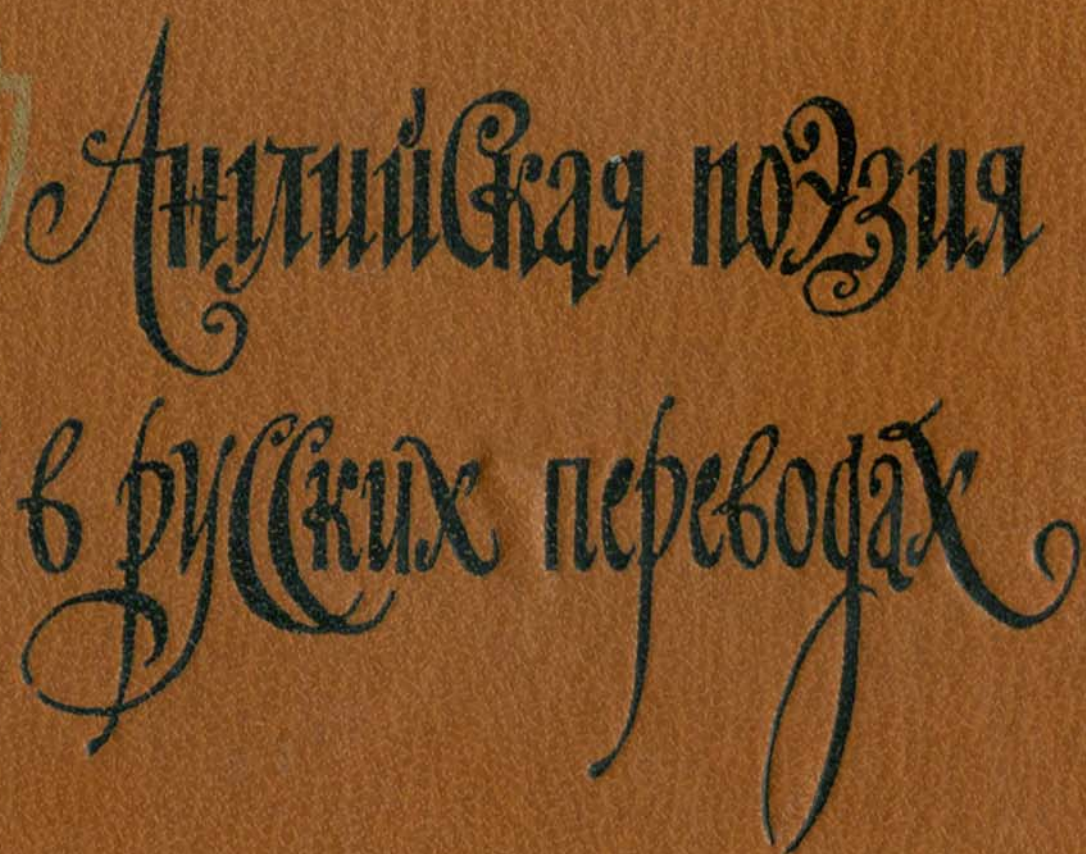 Английская поэзия
в русских переводах